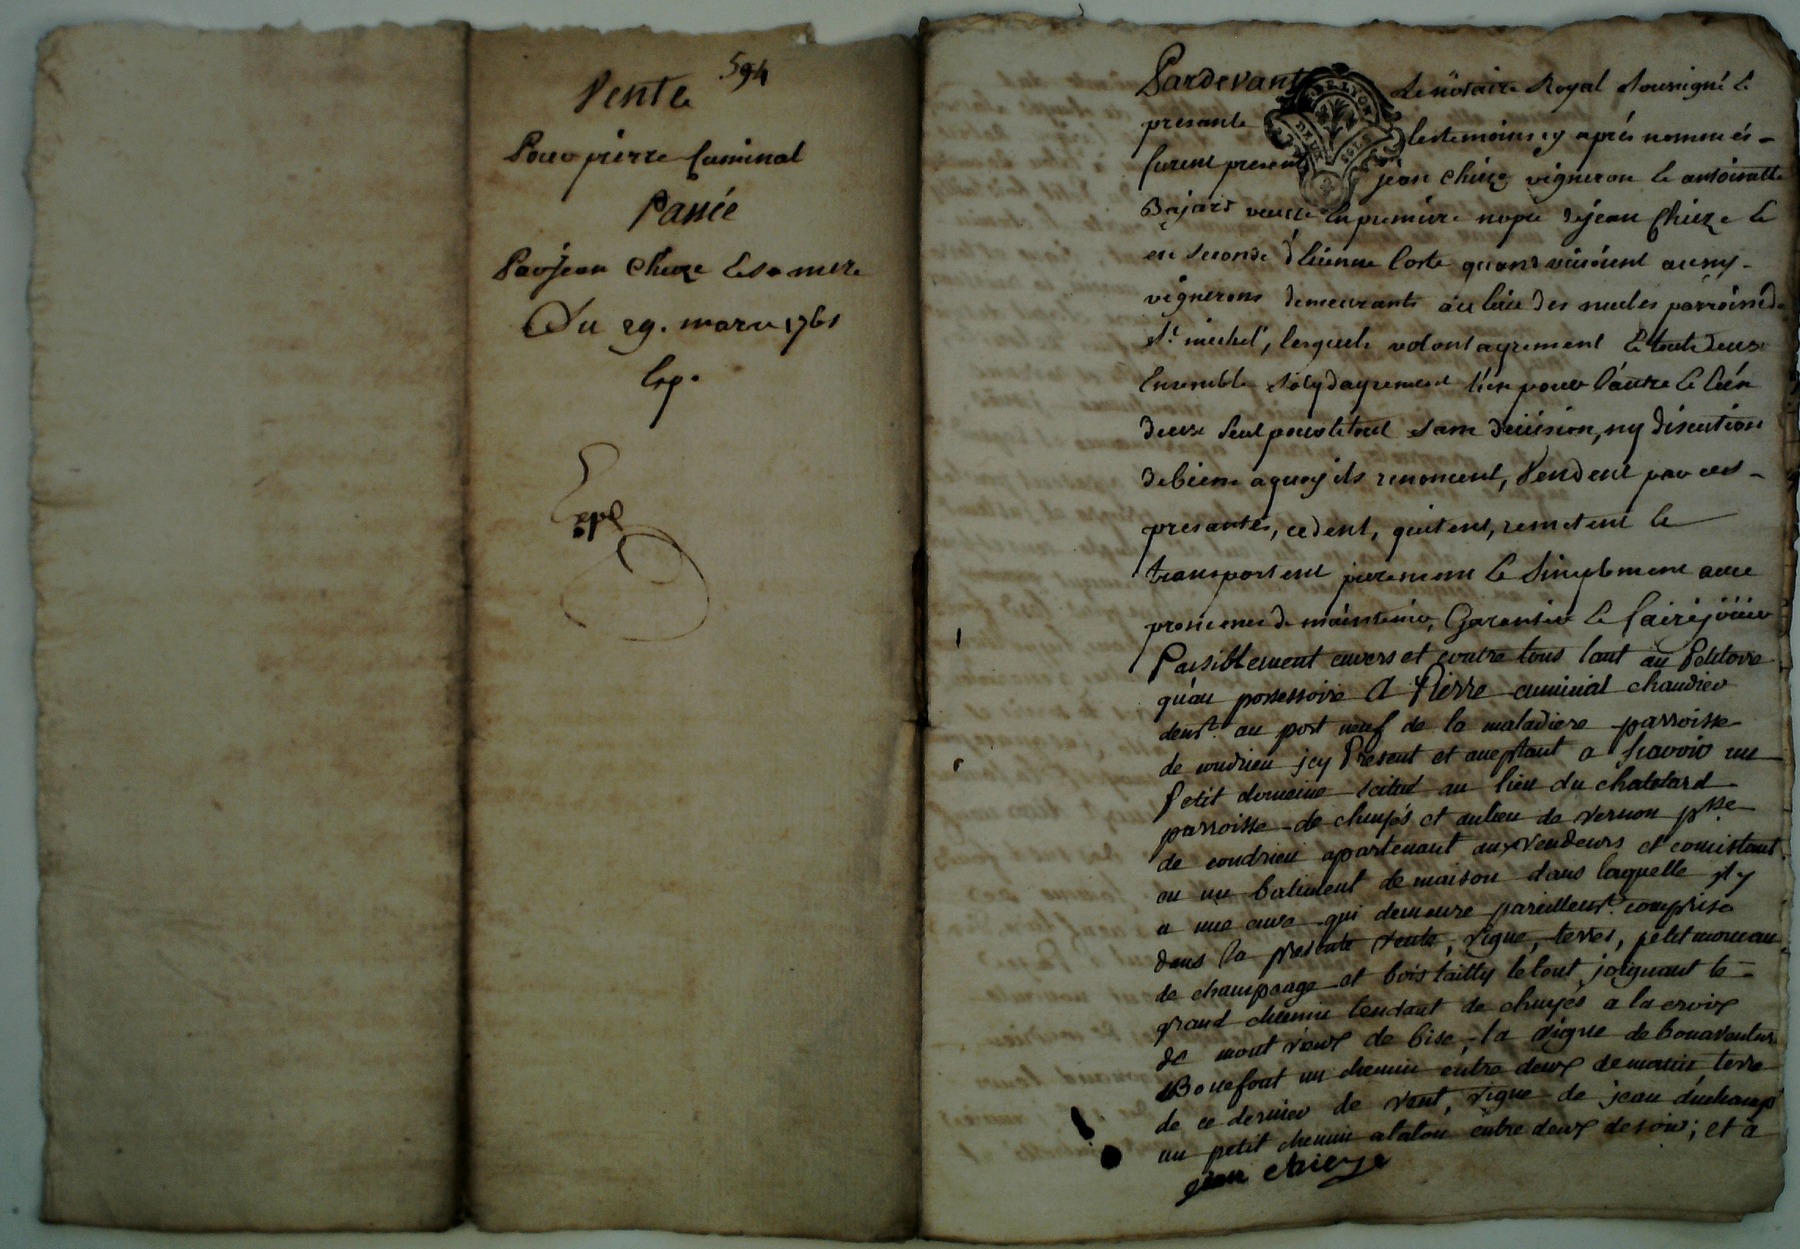 594
Vente
Pour pierre Cuminal
Passée
Par Jean Chieze & sa mere
Du 29. mars 1761
Exp.
Expé
Pardevant Le notaire Royal soussigné &
presants les temoins cy aprés nommés -
furent presents jean chieze vigneron & antoinette
Bajard veuve en premiere nopce de jean Chieze &
en seconde d'Etienne Coste quand vivoient aussy -
vignerons demeurants au lieu des mules parroisse de
St. michel, lesquels volontayrement & touts deux
Ensemble solydayrement l'un pour l'autre & l'un
d'eux seul pour le tout sans division, ny discution
de biens a quoy ils renoncent, Vendent par ces -
presantes, cedent, quitent, remetent &
transportent purement & simplement avec
promesses de maintenir, Garentir & faire joüir
Paisiblement envers et contre tous tant au Petitoire
qu'au possessoire A Pierre cuminal chaudier
demt. au port neuf de la maladiere parroisse
de condrieu jcy Present et aceptant a scavoir un
Petit domeine scitué au lieu du chatelard
parroisse de chuyés et au lieu de vernon psse
de condrieu apartenant aux vendeurs et consistant
en un batiment de maison dans laquelle jl y
a une cuve qui demeure pareillemt. comprise
dans la presente vente, vigne, terres, petit morceau
de champeage et bois tailly le tout joignant le
grand chemin tendant de chuyés a la croix
de mont vieux de bise, la vigne de bonaventure
Bonefont un chemin entre deux de matin terre
de ce dernier de vent, vigne de jean duchamp
un petit chemin a talon entre deux de soir; et a
jean chieze
DE LYON
DEUX SOLS